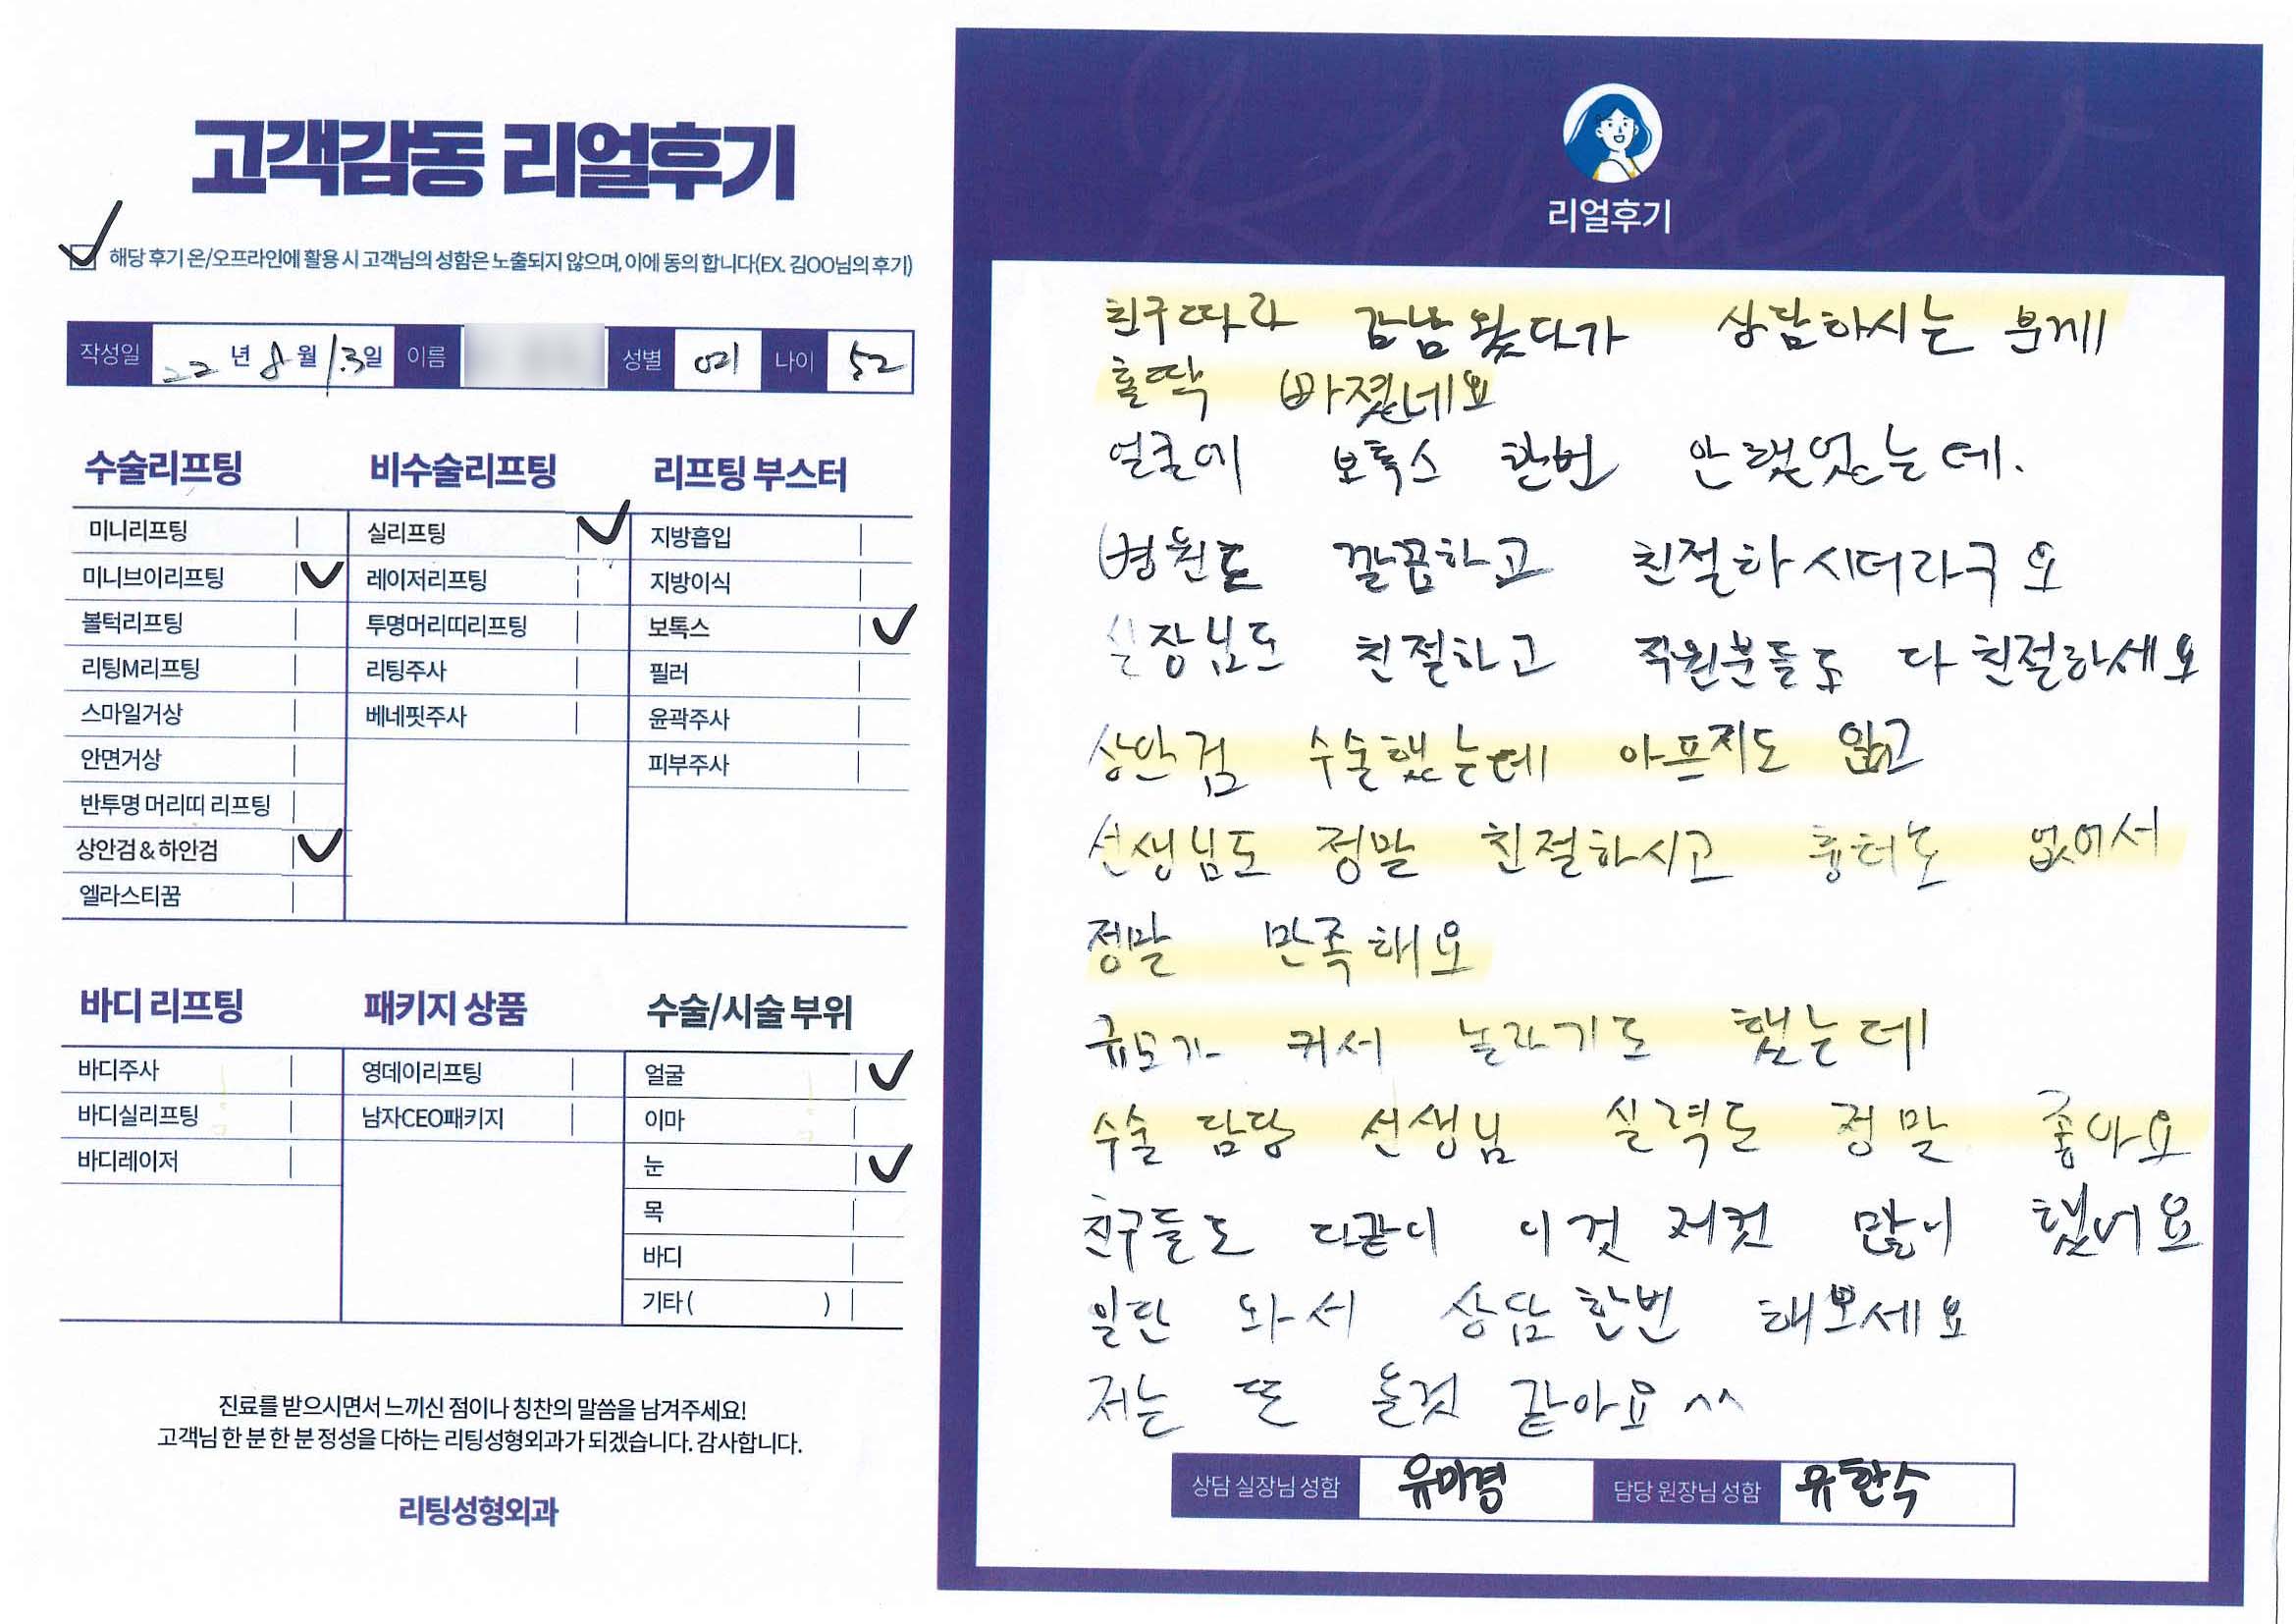 고객감동 리얼후기
해당 후기 온/오프라인에 활용 시 고객님의 성함은 노출되지 않으며, 이에 동의 합니다(EX. 김OO님의 후기)
작성일 22년 8월 13일 이름 성별 여 나이 52
수술리프팅
미니리프팅
미니브이리프팅
볼턱리프팅
리팅M리프팅
스마일거상
안면거상
반투명 머리띠 리프팅
상안검 & 하안검
엘라스티꿈
비수술리프팅
실리프팅
레이저리프팅
투명머리띠리프팅
리팅주사
베네핏주사
리프팅 부스터
지방흡입
지방이식
보톡스
필러
윤곽주사
피부주사
바디 리프팅
바디주사
바디실리프팅
바디레이저
패키지 상품
영데이리프팅
남자CEO패키지
수술/시술 부위
얼굴
이마
눈
목
바디
기타 ( )
진료를 받으시면서 느끼신 점이나 칭찬의 말씀을 남겨주세요!
고객님 한 분 한 분 정성을 다하는 리팅성형외과가 되겠습니다. 감사합니다.
리팅성형외과
Review
리얼후기
친구따라 강남왔다가 상담하시는 분께
홀딱 빠졌네요
얼굴에 보톡스 한번 안했었는데.
병원도 깔끔하고 친절하시더라구요
실장님도 친절하고 직원분들도 다 친절하세요
상안검 수술했는데 아프지도 않고
선생님도 정말 친절하시고 흉터도 없어서
정말 만족해요
규모가 커서 놀라기도 했는데
수술 담당 선생님 실력도 정말 좋아요
친구들도 다같이 이것 저것 많이 했어요
일단 와서 상담 한번 해보세요
저는 또 올것 같아요 ^^
상담 실장님 성함 유미경 담당 원장님 성함 유한수